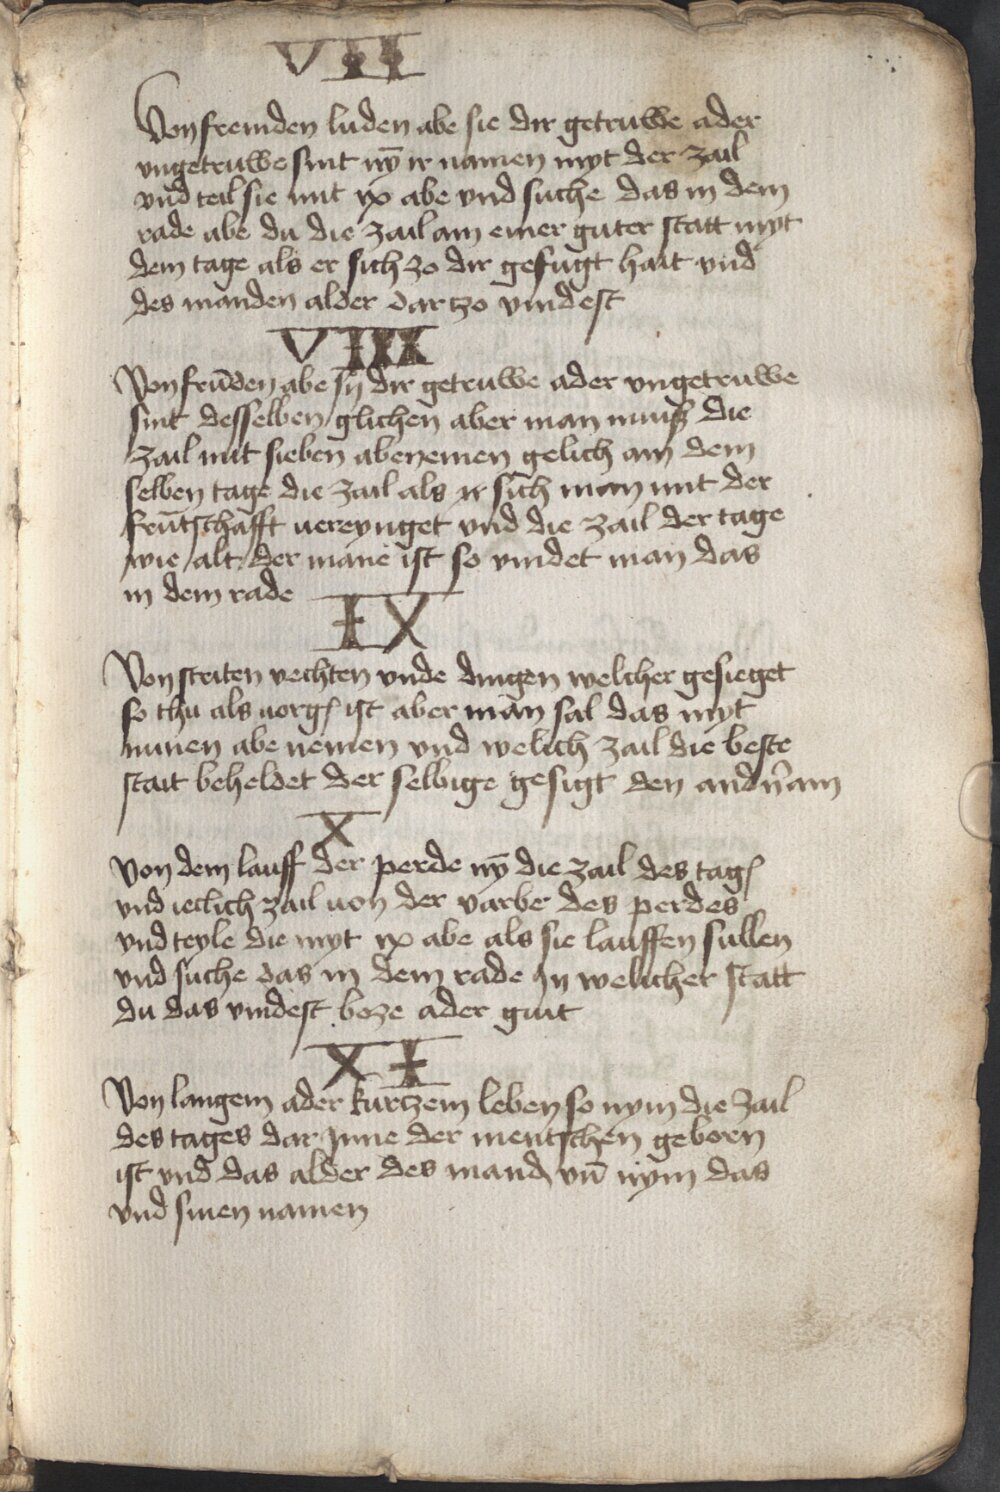 VII
Von fremden luden abe sie dir getruwe ader
vngetruwe sint ny̅ ir namen myt der zail
vnd teil sie mit ix abe vnd suche das in dem
rade abe du die zail am einer guter statt myt
dem tage als er sich zo dir gefugt hait vnd
des manden alder dar tzo vindest
VIII
Von frūden abe sy dir getruwe ader vngetruwe
sint desselben glichen aber man muß die
zail mit sieben abenemen gelich am dem
selben tage die zail als ir sich man mit der
frūtschafft uereynget vnd die zail der tage
wie alt der mane ist so vindet man das
in dem rade
IX
Von striten vechten vnde dingen welcher gesieget
so thu als uorgʃ ist aber man sal das myt
nunen abe nemen vnd welich zail die beste
stait beheldet der selbige gesigt den andn̄ am
X
Von dem lauff der perde ny̅ die zail des tagʃ
vnd ieclich zail uon der varbe des perdes
vnd teyle die myt ix abe als sie lauffen sullen
vnd suche das in dem rade Jn welicher statt
du das vindest boze ader guit
XI
Von langem ader kurtzem leben so nym die zail
des tages dar Jnne der mentschen geborn
ist vnd das alder des mand vn̄ nym das
vnd sinen namen